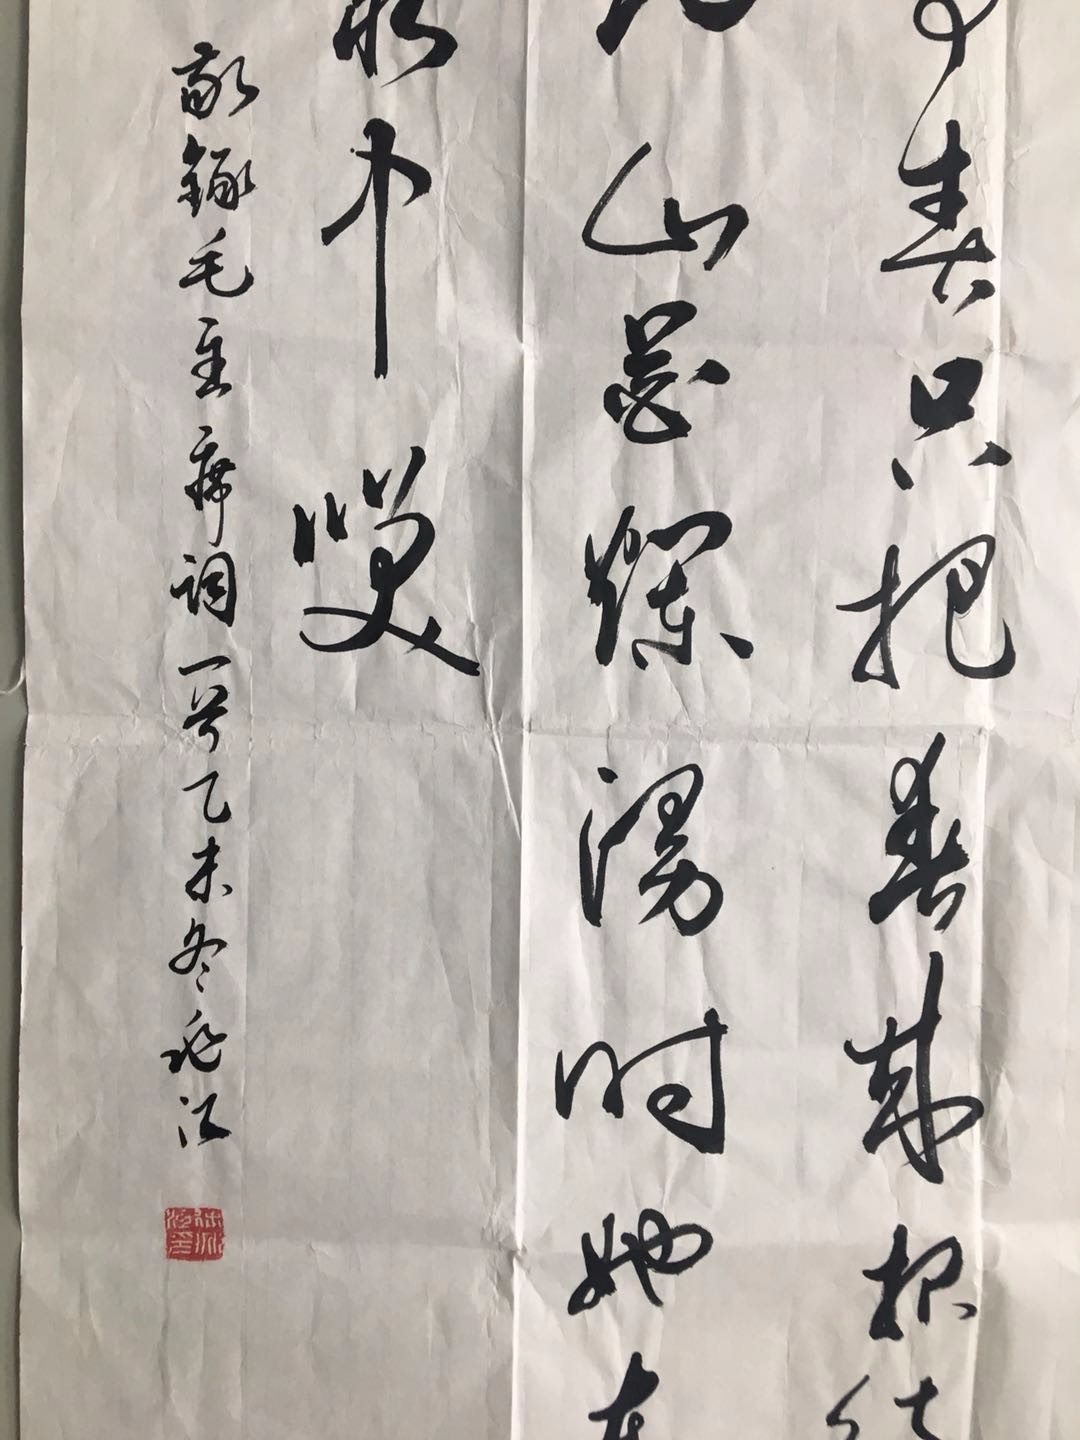 争春只把春来报待
到山花烂漫时她在
丛中笑
敬録毛主席词一首乙未冬江